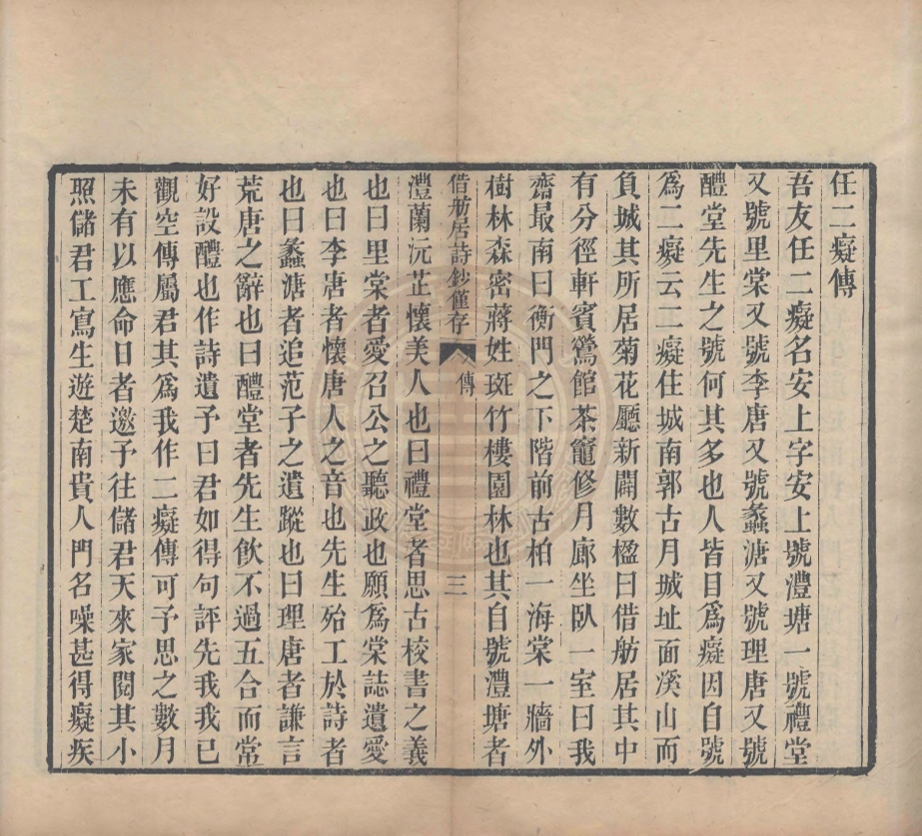 任二癡傳
吾友任二癡名安上字安上號澧塘一號禮堂
又號里棠又號李唐又號蠡溏又號理唐又號
醴堂先生之號何其多也人皆目爲癡因自號
爲二癡云二癡住城南郭古月城址面溪山而
負城其所居菊花廳新闢數楹曰借舫居其中
有分徑軒賓鶯館茶竈修月廊坐臥一室曰我
齋最南曰衡門之下階前古柏一海棠一牆外
樹林森密蔣姓斑竹樓園林也其自號澧塘者
借舫居詩鈔僅存
傳
三
澧蘭沅芷懷美人也曰禮堂者思古校書之義
也曰里棠者愛召公之聽政也願爲棠誌遺愛
也曰李唐者懷唐人之音也先生殆工於詩者
也曰蠡溏者追范子之遺蹤也曰理唐者謙言
荒唐之辭也曰醴堂者先生飲不過五合而常
好設醴也作詩遺予曰君如得句評先我我已
觀空傳屬君其爲我作二癡傳可予思之數月
未有以應命日者邀予往儲君天來家閱其小
照儲君工寫生遊楚南貴人門名噪甚得癡疾